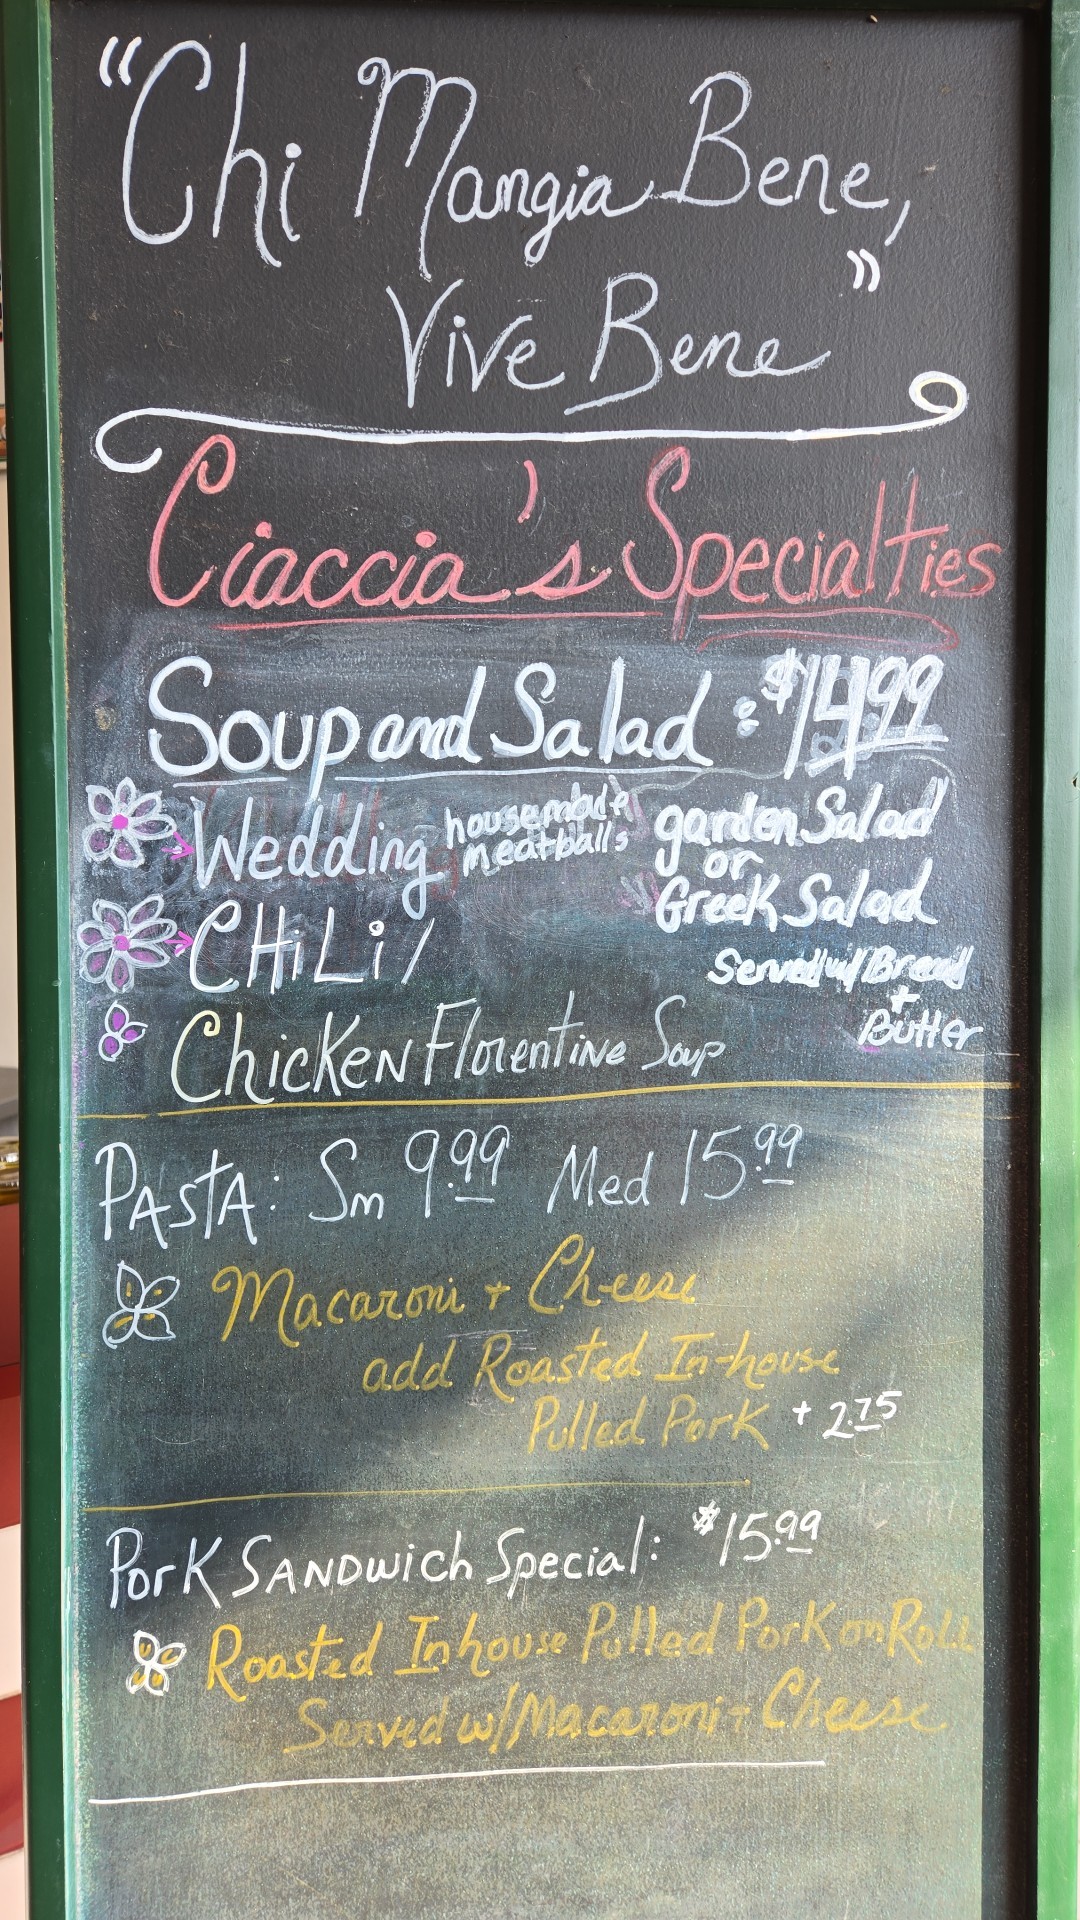 "Chi Mangia Bene,
Vive Bene"
Ciaccia's Specialties
Soup and Salad: $14.99
Wedding housemade meatballs
CHiLi /
Chicken Florentine Soup
garden Salad
or
Greek Salad
Served w/ Bread
+
Butter
PAStA: Sm 9.99 Med 15.99
Macaroni + Cheese
add Roasted In-house
Pulled Pork + 2.75
Pork SANDwich Special: $15.99
Roasted Inhouse Pulled Pork on Roll
Served w/ Macaroni + Cheese